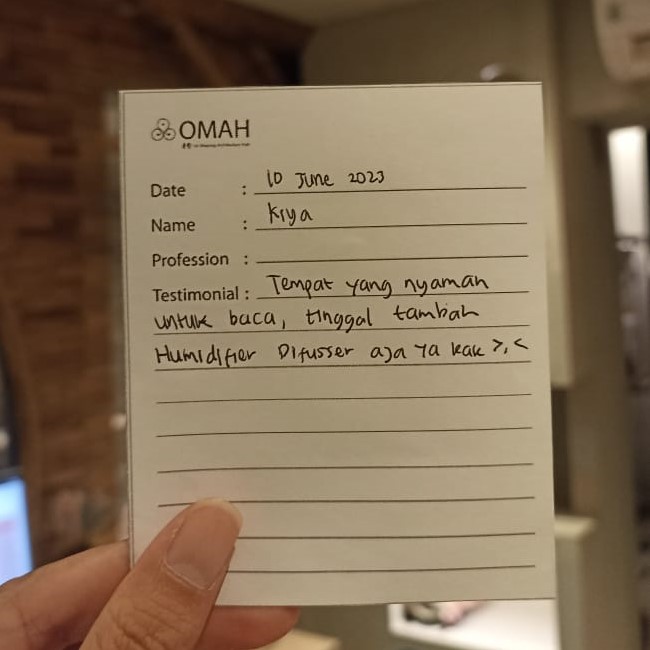 OMAH
Date : 10 June 2023
Name : Krya
Profession :
Testimonial : Tempat yang nyaman
untuk baca, tinggal tambah
Humidifier Difusser aja ya kak >,<